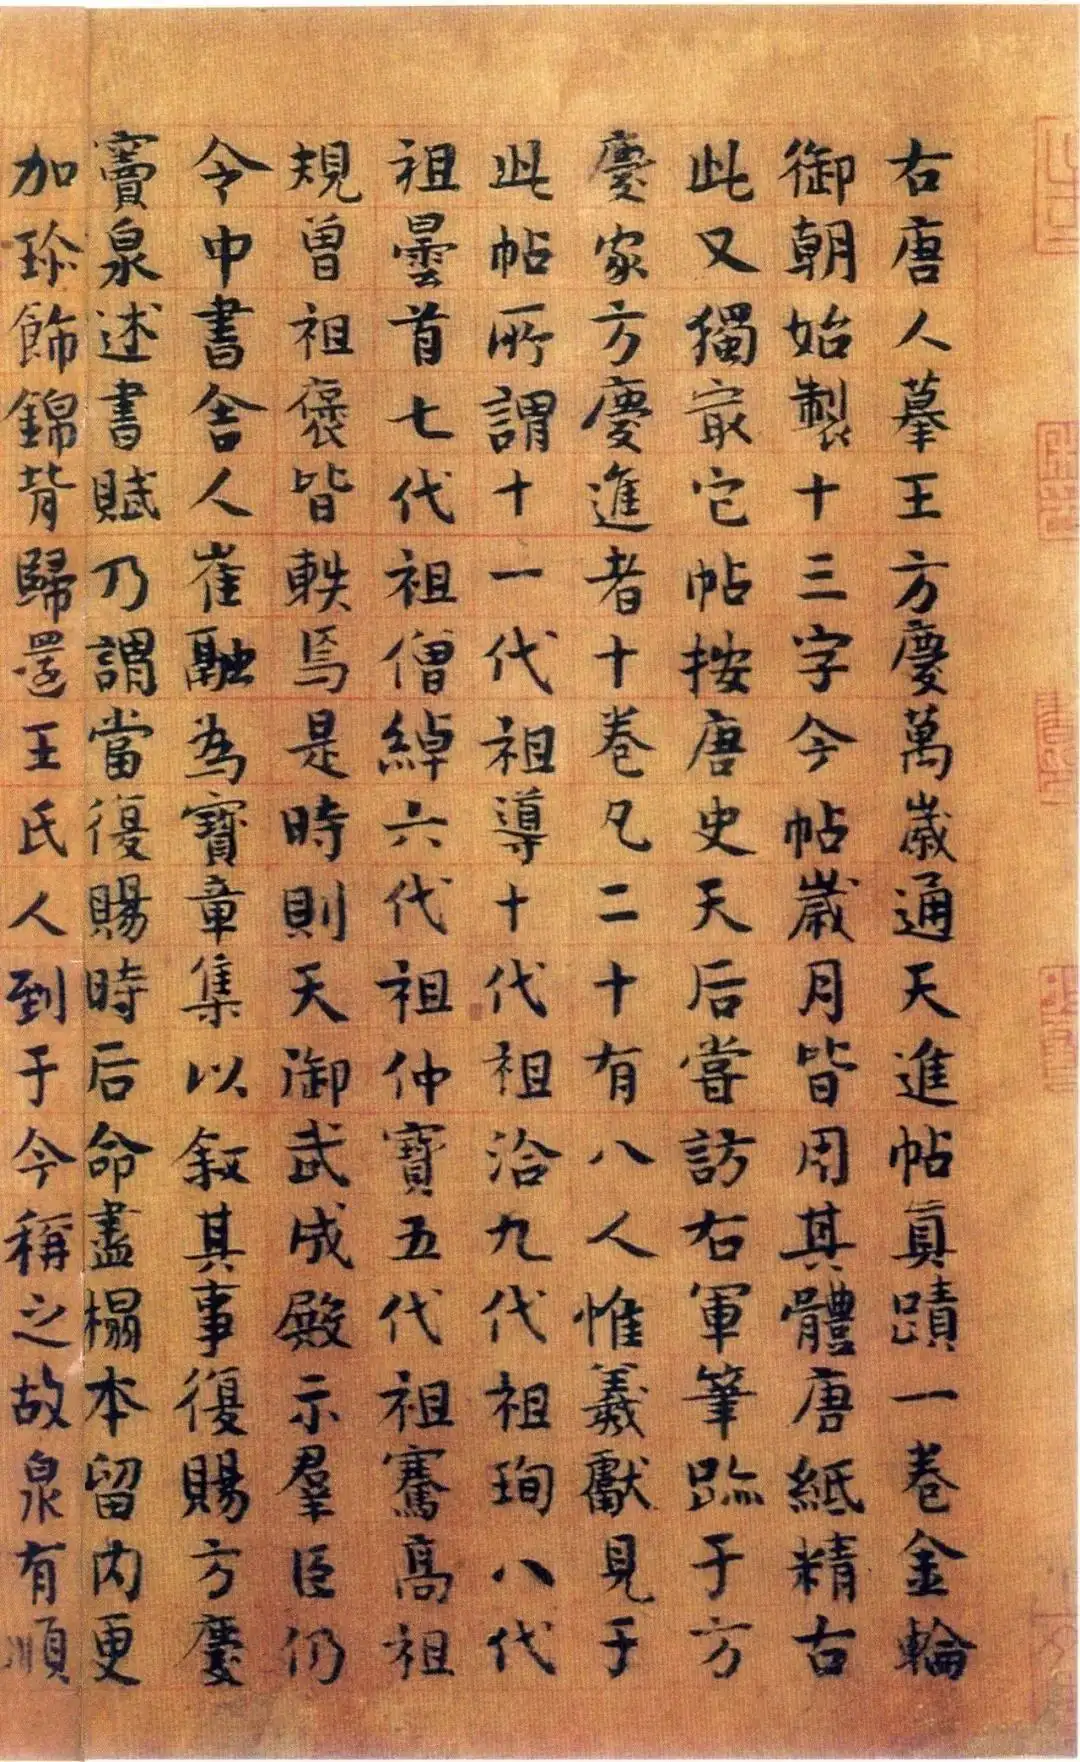 右唐人摹王方慶萬歲通天進帖真蹟一卷金輪
御朝始製十三字今帖歲月皆用其體唐紙精古
此又獨冣它帖按唐史天后嘗訪右軍筆蹟于方
慶家方慶進者十卷凡二十有八人惟羲獻見于
此帖所謂十一代祖導十代祖洽九代祖珣八代
祖曇首七代祖僧綽六代祖仲寶五代祖騫高祖
規曾祖褒皆軼焉是時則天御武成殿示羣臣仍
令中書舍人崔融為寶章集以叙其事復賜方慶
竇臮述書賦乃謂當復賜時后命盡榻本留內更
加珎飾錦背歸還王氏人到于今稱之故臮有順